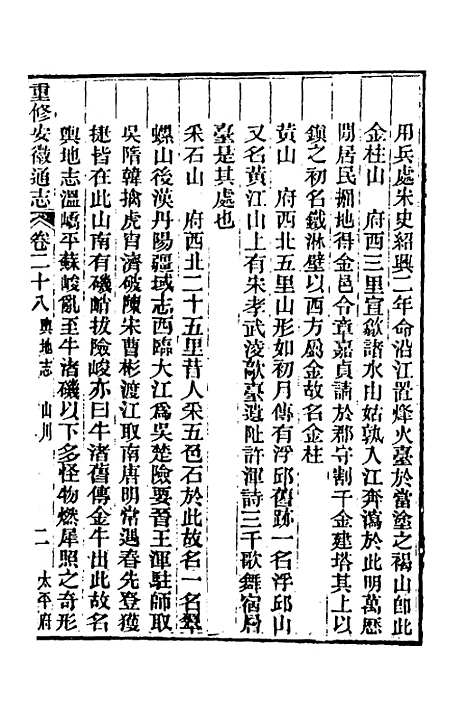 用兵處宋史紹興二年命沿江置烽火臺於當塗之褐山卽此
金柱山　府西三里宣歙諸水由姑孰入江奔瀉於此明萬歷
間居民掘地得金邑令章嘉貞請於郡守割千金建塔其上以
鎮之初名鐵淋壁以西方屬金故名金柱
黃山　府西北五里山形如初月傳有浮邱舊跡一名浮邱山
又名黃江山上有宋孝武淩歊臺遺阯許渾詩三千歌舞宿層
臺是其處也
采石山　府西北二十五里昔人采五色石於此故名一名翠
螺山後漢丹陽疆域志西臨大江爲吳楚險要晉王渾駐師取
吳隋韓擒虎宵濟破陳宋曹彬渡江取南唐明常遇春先登獲
捷皆在此山南有磯峭拔險峻亦曰牛渚舊傳金牛出此故名
輿地志溫嶠平蘇峻亂至牛渚磯以下多怪物燃犀照之奇形
重修安徽通志　卷二十八　輿地志　山川　二　太平府